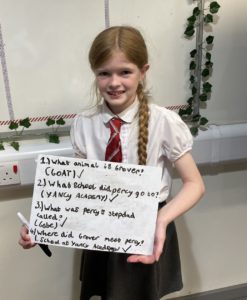 1) What animal is Grover?
(GOAT) ✓
2) What school did percy go to?
(YANCY Academy) ✓
3) What was percy's stepdad
called?
(Gabe) ✓
4) Where did Grover meet percy?
(School at Yancy Academy) ✓